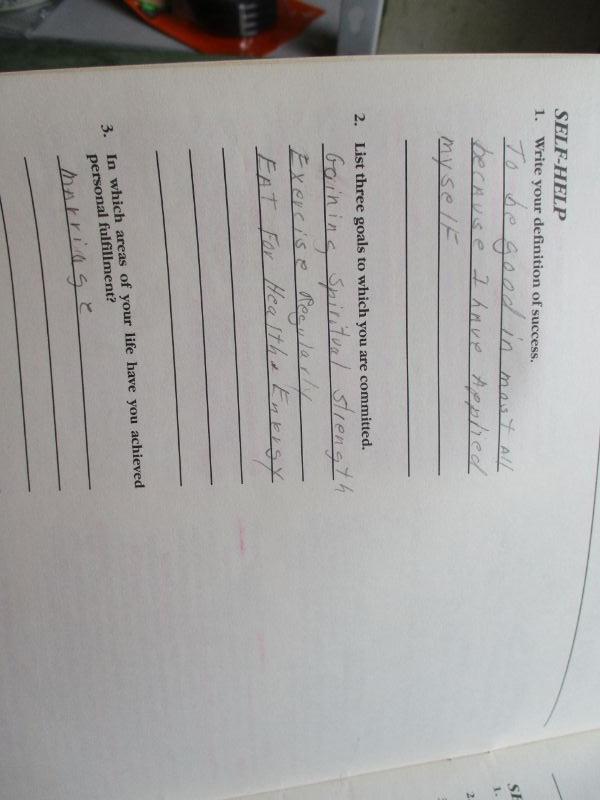 SELF-HELP
1. Write your definition of success.
To be good in most All
because I have Applied
myself
2. List three goals to which you are committed.
Gaining Spiritual Strength
Exercise Regularly
EAT For Health & Energy
3. In which areas of your life have you achieved
personal fulfillment?
Marriage
1.
2.